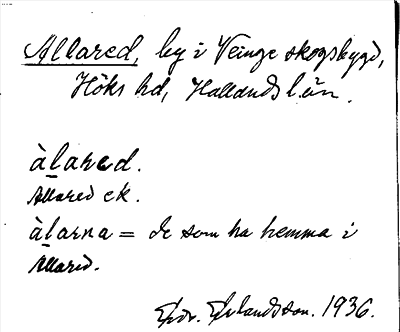 Allared, by i Veinge skogsbygd,
Höks hd, Hallands län.
àlared.
Allared ek.
àlarna = de som ha hemma i
Allared.
Erlandsson. 1936.